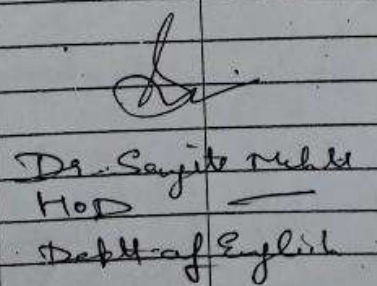 Dr. Sangita Mehta
HOD
Deptt. of English